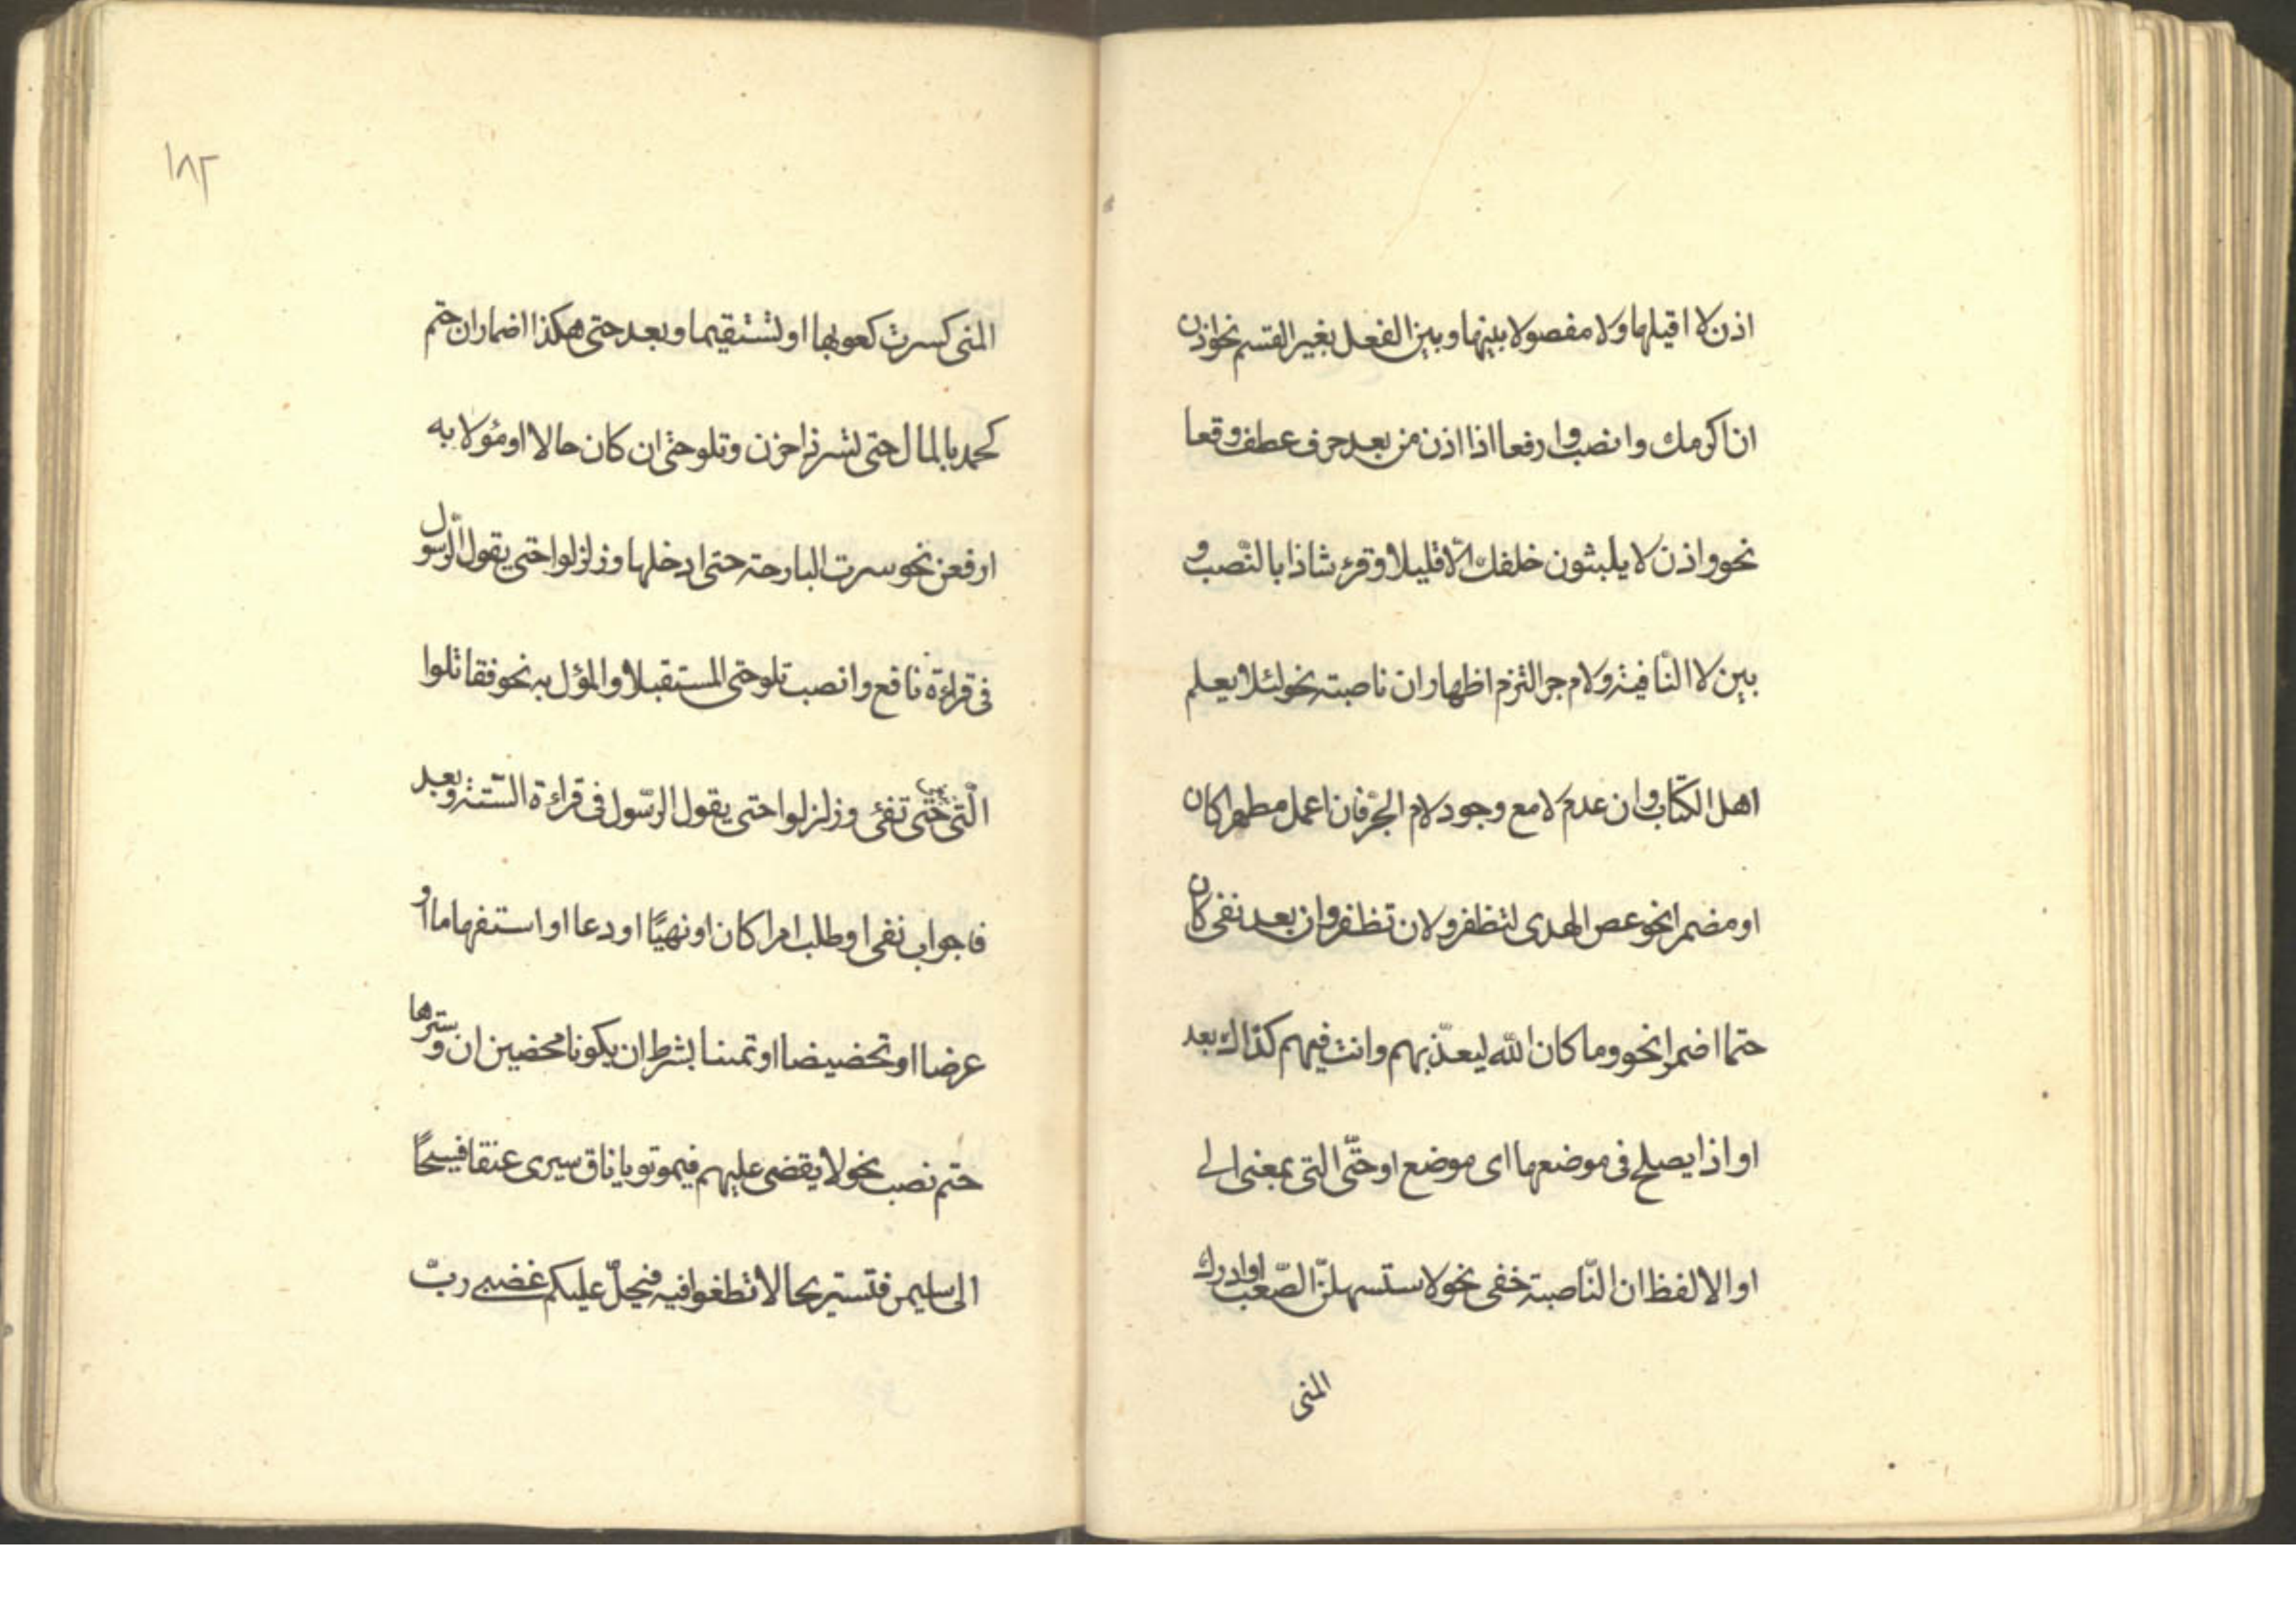 اذن لا اقيلها ولا مفصولا بينها وبين الفعل بغير القسم نحو اذن
ان اكرمك وانصب وارفعا اذا اذن من بعد حرف عطف وقعا
نحو واذن لا يلبثون خلفك الّا قليلا وقرئ شاذا بالنّصب و
بين لا النّافية ولام جر التزم اظهار ان ناصبته نحو لئلا يعلم
اهل الكتاب وان عدم لا مع وجود لام الجرّ فان اعمل مظهرا كان
او مضمرا نحو عص الهدى لتظفر ولان تظفر وان بعد نفى كان
حتما اضمرا نحو وما كان اللّه ليعذّبهم وانت فيهم كذاك بعد
او اذا يصلح فى موضعها اى موضع او حتّى التى بمعنى الى
او الا لفظ ان النّاصبته خفى نحو لاستسهلنّ الصّعب او ادرك
المنى
١٨٢
المنى كسرت كعوبها او تستقيما وبعد حتى هكذا اضمار ان حتم
كجد بالمال حتى تسر ذا حزن وتلو حتى ان كان حالا او مؤولا به
ارفعن نحو سرت البارحته حتى ادخلها وزلزلوا حتى يقول الرّسول
فى قراءة نافع وانصب تلو حتى المستقبلا والمؤل به نحو فقاتلوا
الّتى حتّى تفئ وزلزلوا حتى يقول الرّسول فى قراءة السّتة وبعد
فا جواب نفى او طلب امرا كان او نهيًا او دعا او استفهاما او
عرضا او تحضيضا او تمنيا بشرط ان يكونا محضين ان وسترها
حتم نصب نحو لا يقضى عليهم فيموتو يا ناق سيرى عنقا فسيحًا
الى سليمن فتستريحا لا تطغوا فيه فيحلّ عليكم غضبى ربّ